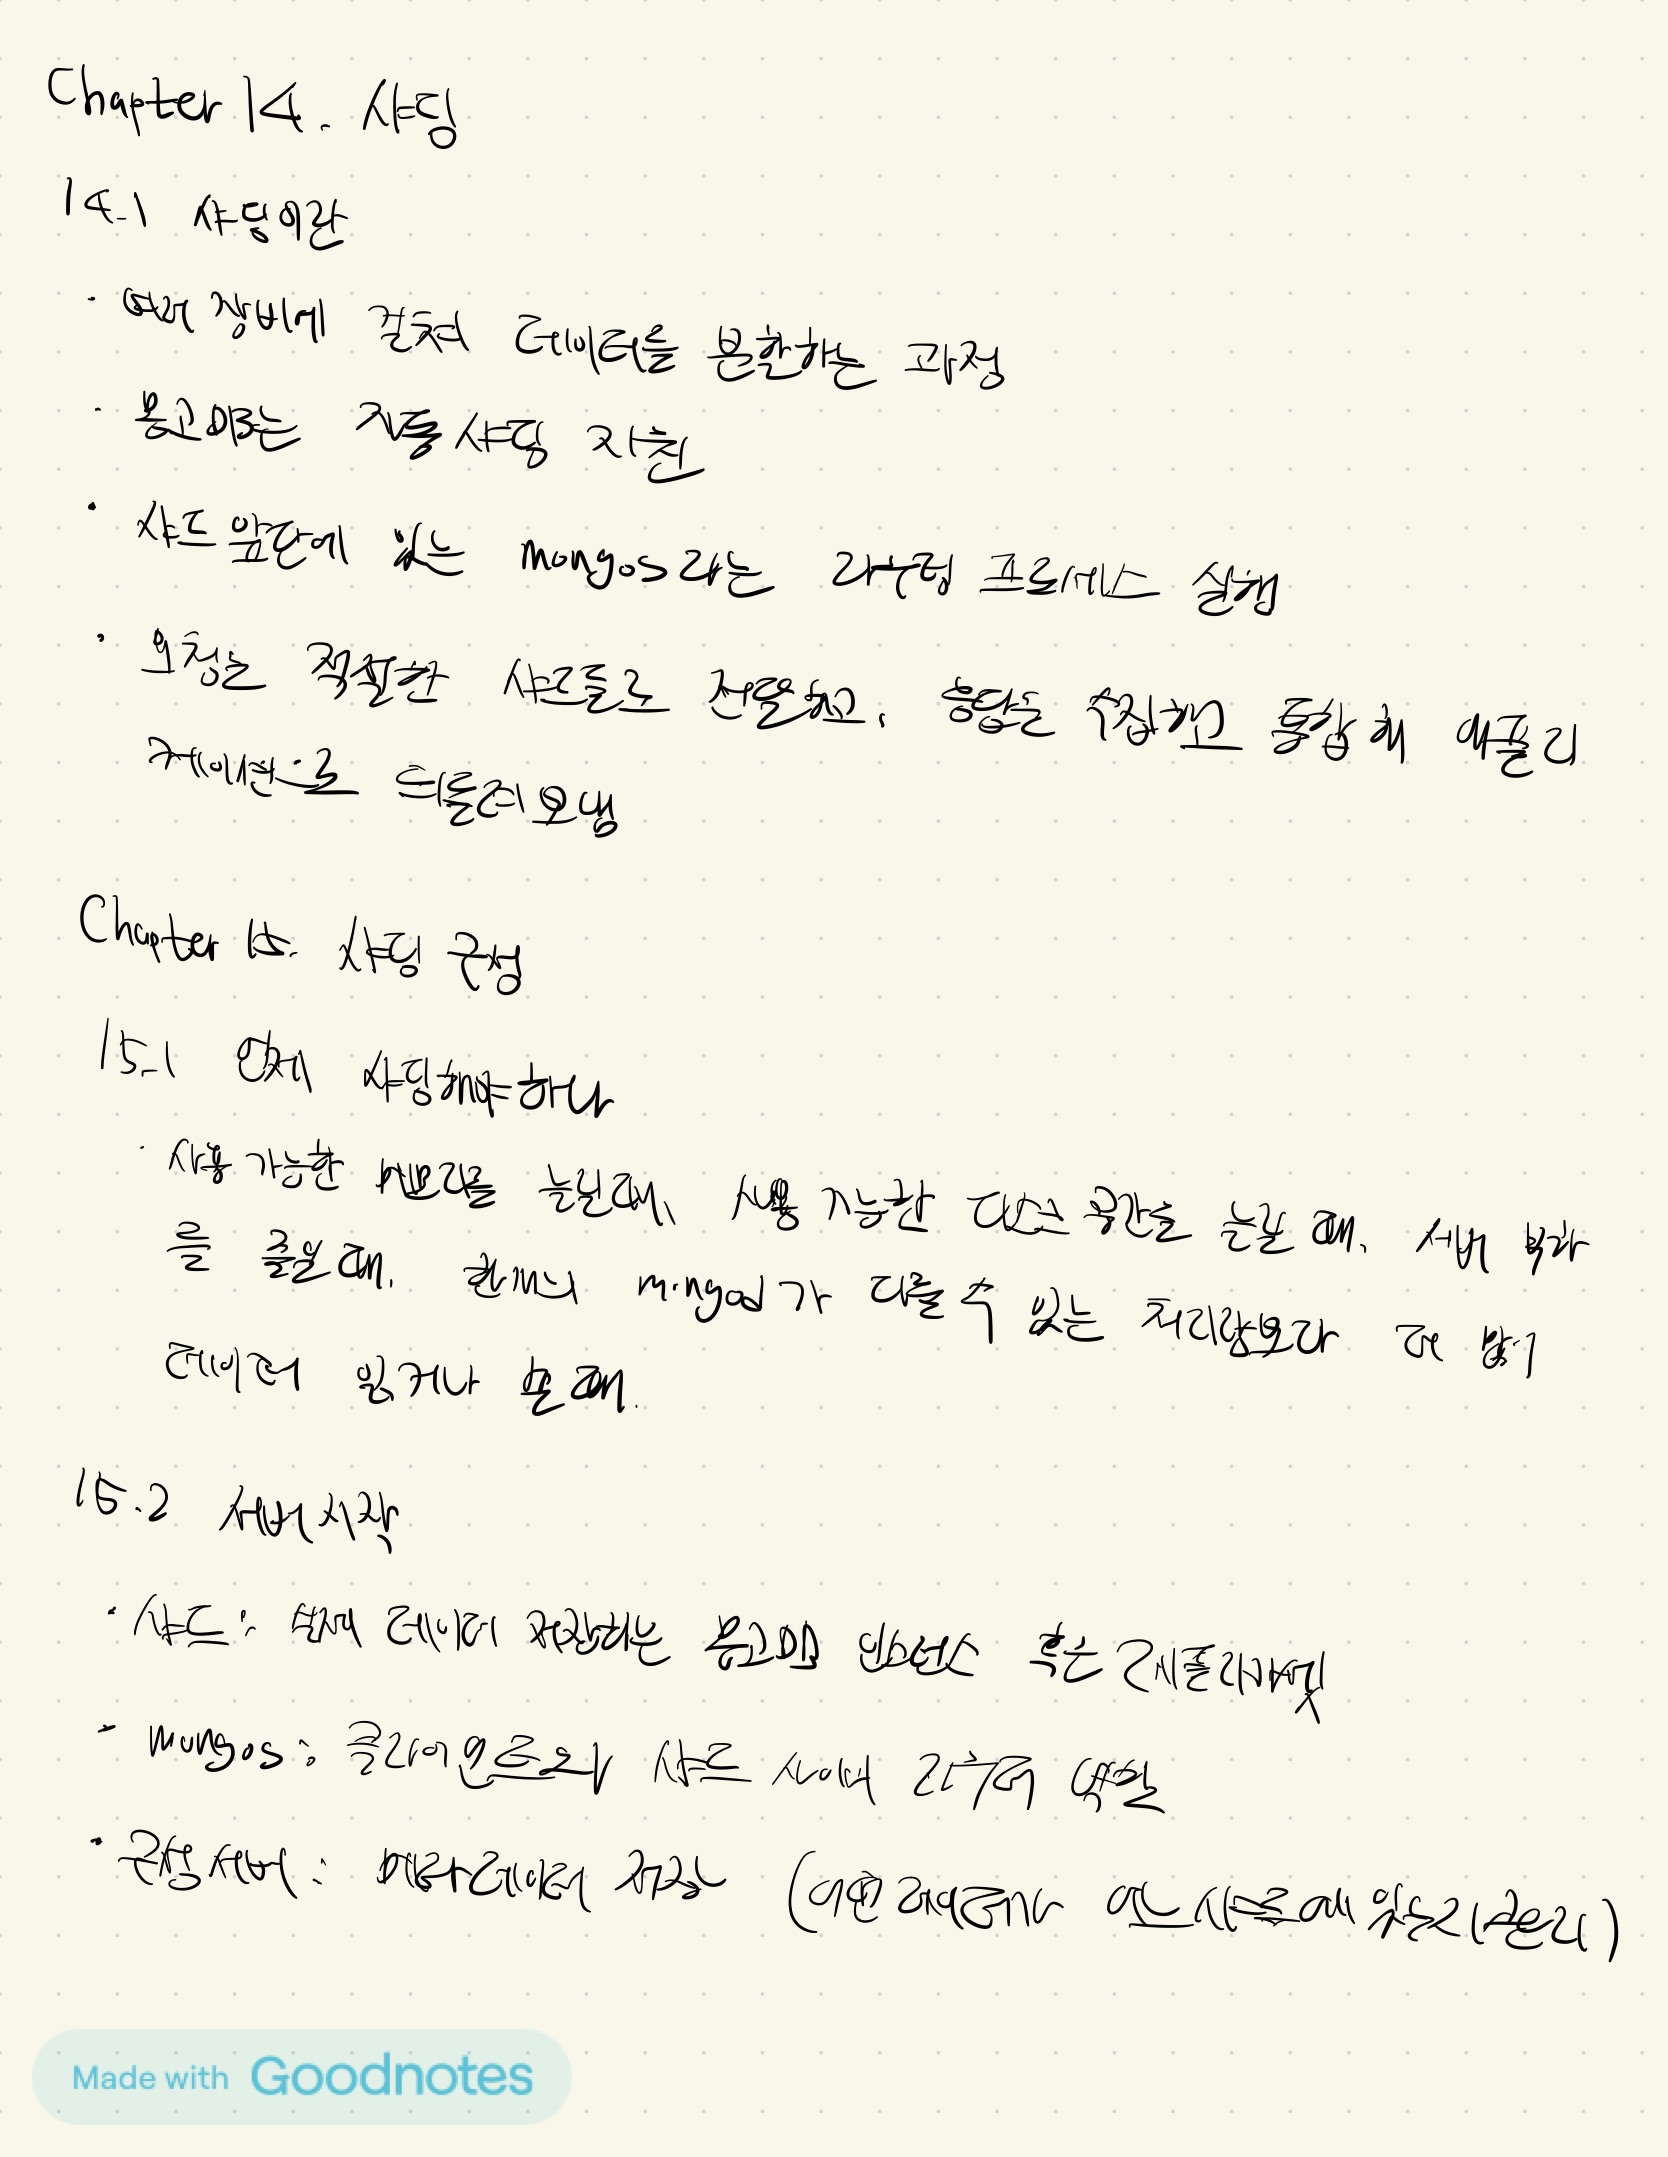 Chapter 14. 샤딩
14.1 샤딩이란
· 여러 장비에 걸쳐 데이터를 분할하는 과정
· 몽고DB는 자동 샤딩 지원
· 샤드 앞단에 있는 mongos라는 라우팅 프로세스 실행
· 요청을 적절한 샤드들로 전달하고, 응답을 수집하고 통합해 애플리
케이션으로 되돌려보냄
Chapter 15. 샤딩 구성
15.1 언제 샤딩해야하나
· 사용 가능한 메모리를 늘릴때, 사용 가능한 디스크 공간을 늘릴 때, 서버 부하
를 줄일 때, 한개의 mongod가 다룰 수 있는 처리량보다 더 많이
데이터 읽거나 쓸 때.
15.2 서버 시작
· 샤드: 실제 데이터 저장하는 몽고DB 인스턴스 혹은 레플리카셋
· mongos: 클라이언트와 샤드 사이에 라우터 역할
· 구성 서버: 메타데이터 저장 (어떤 데이터가 어느 샤드에 있는지 관리)
Made with Goodnotes